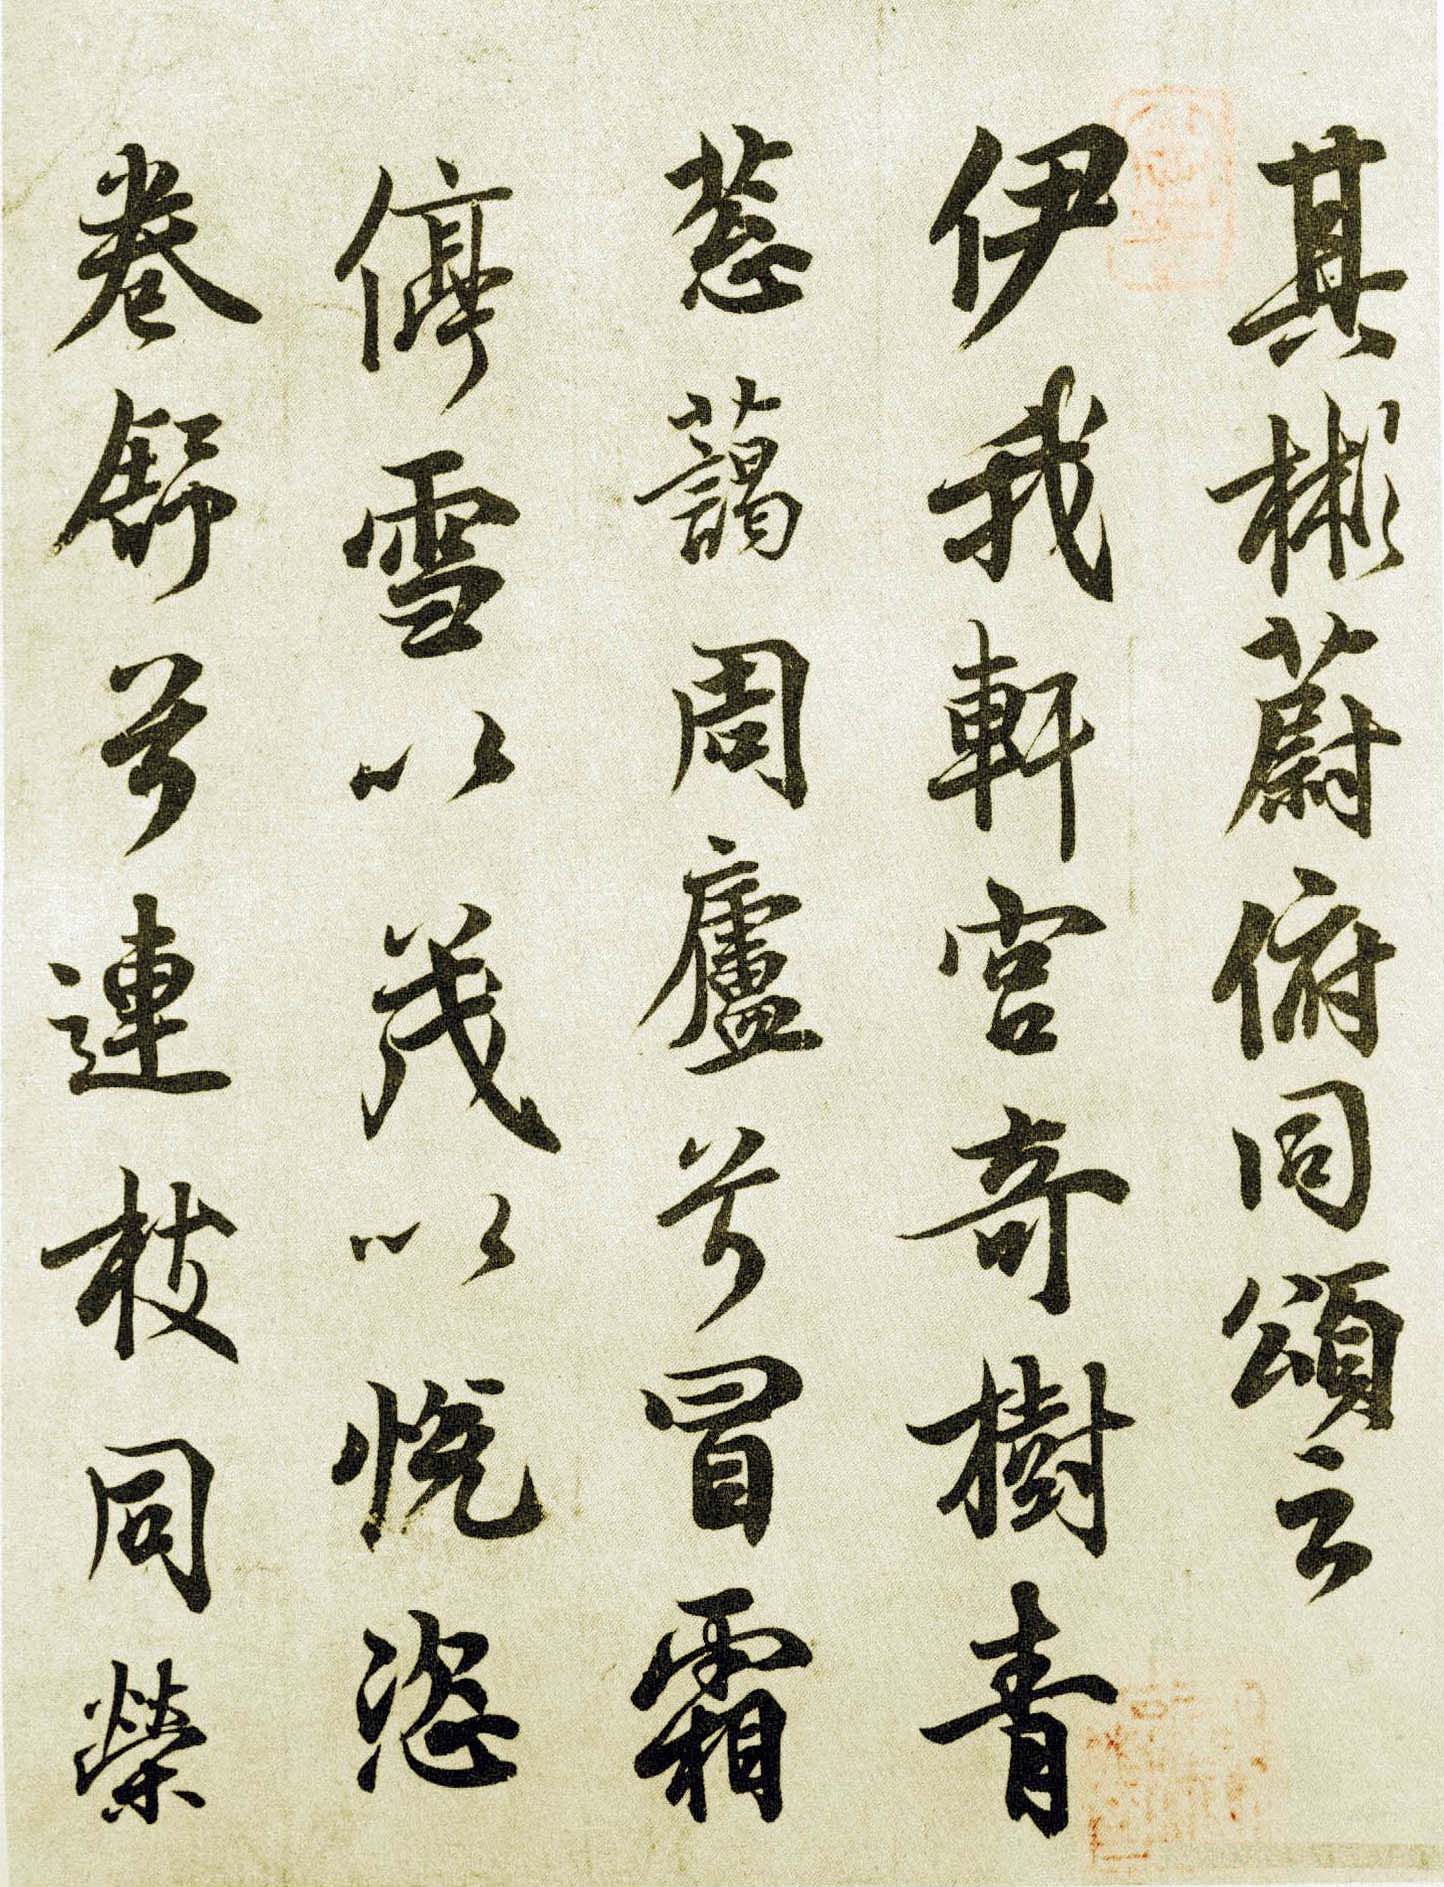 其彬蔚俯同頌云
伊我軒宮奇樹青
葱藹周廬兮冒霜
停雪以茂以悦恣
卷舒兮連枝同榮